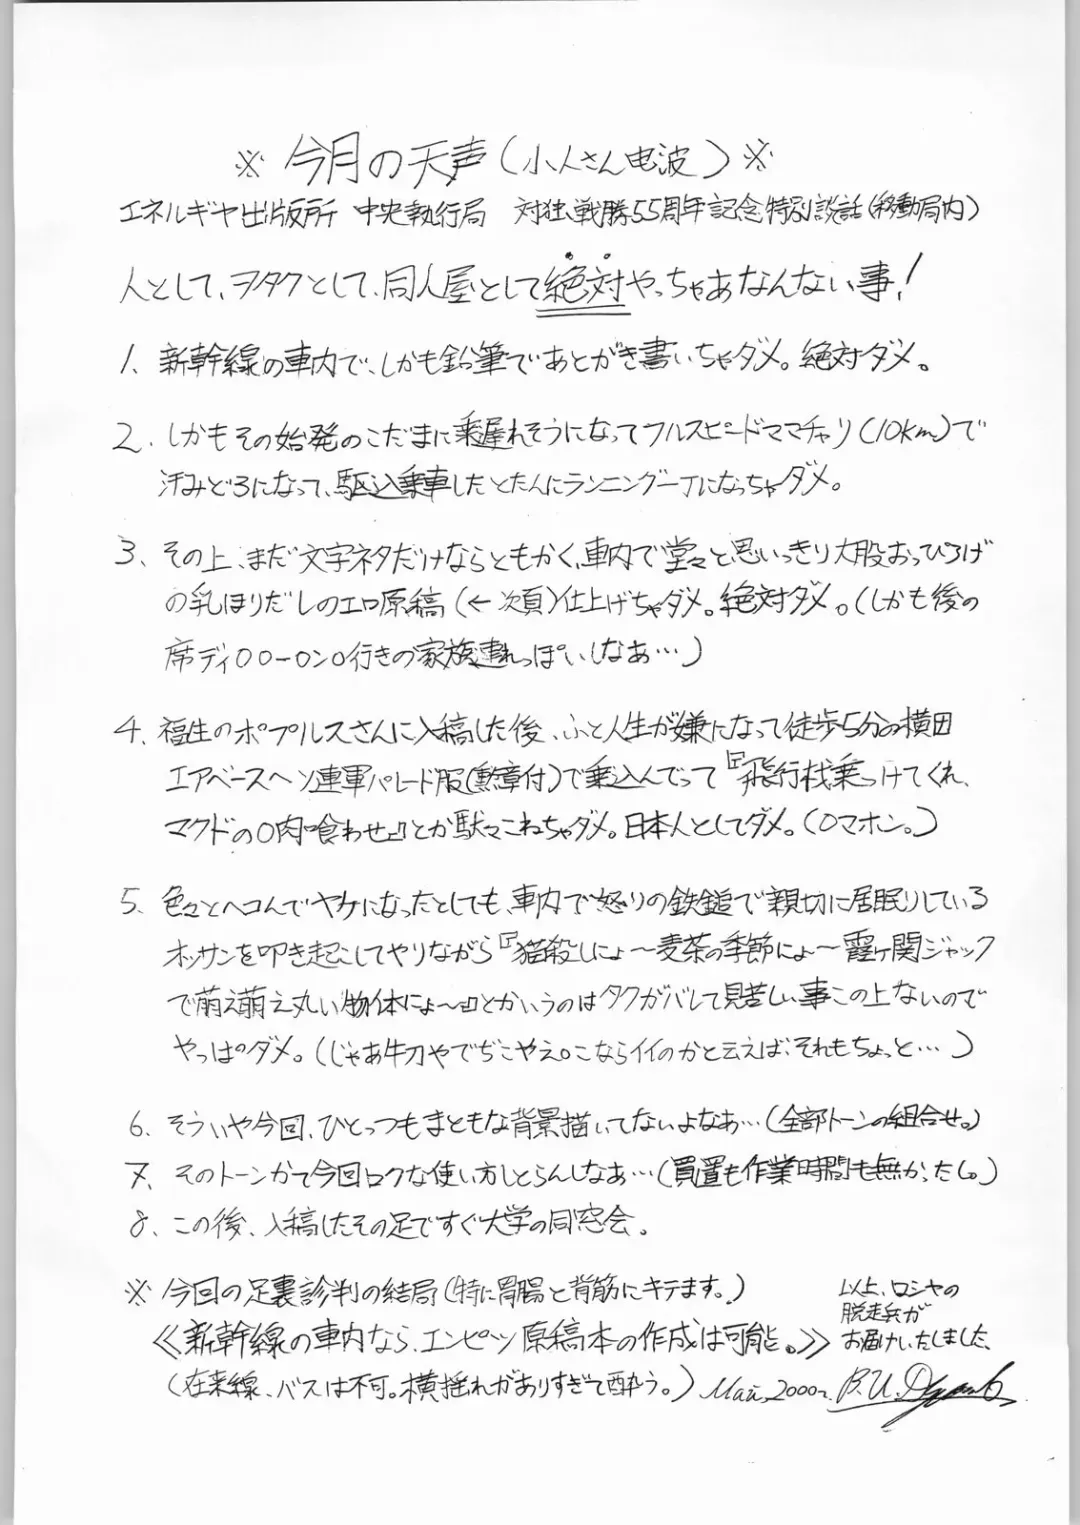 ※ 今月の天声(小人さん电波) ※
エネルギヤ出版所 中央執行局 対独戦勝55周年記念特別談話(移動局内)
人として、ヲタクとして、同人屋として絶対やっちゃあなんない事!
1. 新幹線の車内で、しかも鉛筆であとがき書いちゃダメ。絶対ダメ。
2. しかもその始発のこだまに乗遅れそうになってフルスピードママチャリ(10km)で
汗みどろになって、駆込乗車したとたんにランニング一丁になっちゃダメ。
3、その上、まだ文字ネタだけならともかく、車内で堂々と思いっきり大股おっぴろげ
の乳ほりだしのエロ原稿(←次頁)仕上げちゃダメ。絶対ダメ。(しかも後の
席ディ〇〇ー〇ン〇行きの家族連れっぽいしなあ…)
4、福生のポプルスさんに入稿した後、ふと人生が嫌になって徒歩5分の横田
エアベースへソ連軍パレード服(勲章付)で乗込んでって『飛行机乗っけてくれ、
マクドの〇肉喰わせ』とか駄々こねちゃダメ。日本人としてダメ。(〇マホン。)
5、色々とヘコんでヤケになったとしても、車内で怒りの鉄鎚で親切に居眠りしている
オッサンを叩き起こしてやりながら『猫殺しにょ〜麦茶の季節にょ〜霞ヶ関ジャック
で萌え萌え丸い物体にょ〜』とかいうのはタクがバレて見苦しい事この上ないので
やっぱダメ。(じゃあ牛刀やでぢこやえ〇こならイイのかと云えば、それもちょっと…)
6、そういや今回、ひとつもまともな背景描いてないよなあ…(全部トーンの組合せ。)
7、そのトーンかて今回ロクな使い方しとらんしなあ…(買置も作業時間も無かったし。)
8、この後、入稿したその足ですぐ大学の同窓会。
※ 今回の足裏診判の結局(特に胃腸と背筋にキテます。)
≪新幹線の車内なら、エンピツ原稿本の作成は可能。≫
(在来線、バスは不可。横揺れがありすぎて酔う。)
以上、ロシヤの
脱走兵が
お届けいたしました。
Май, 2000г.